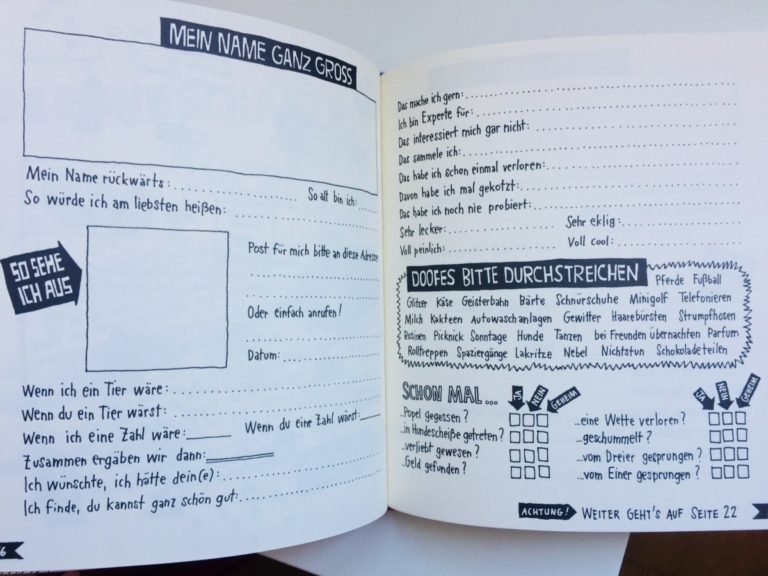 MEIN NAME GANZ GROSS
Mein Name rückwärts:
So alt bin ich:
So würde ich am liebsten heißen:
SO SEHE
ICH AUS
Post für mich bitte an diese Adresse
Oder einfach anrufen!
Datum:
Wenn ich ein Tier wäre:
Wenn du ein Tier wärst:
Wenn ich eine Zahl wäre:
Wenn du eine Zahl wärst:
Zusammen ergäben wir dann:
Ich wünschte, ich hätte dein(e):
Ich finde, du kannst ganz schön gut:
6
Das mache ich gern:
Ich bin Experte für:
Das interessiert mich gar nicht:
Das sammele ich:
Das habe ich schon einmal verloren:
Davon habe ich mal gekotzt:
Das habe ich noch nie probiert:
Sehr lecker: Sehr eklig:
Voll peinlich: Voll cool:
DOOFES BITTE DURCHSTREICHEN Pferde Fußball
Glitzer Käse Geisterbahn Bärte Schnürschuhe Minigolf Telefonieren
Milch Kakteen Autowaschanlagen Gewitter Haarebürsten Strumpfhosen
Rosinen Picknick Sonntage Hunde Tanzen bei Freunden übernachten Parfum
Rolltreppen Spaziergänge Lakritze Nebel Nichtstun Schokolade teilen
SCHON MAL...
JA NEIN GEHEIM
JA NEIN GEHEIM
...Popel gegessen?
...in Hundescheiße getreten?
...verliebt gewesen?
...Geld gefunden?
...eine Wette verloren?
...geschummelt?
...vom Dreier gesprungen?
...vom Einer gesprungen?
ACHTUNG! WEITER GEHT'S AUF SEITE 22